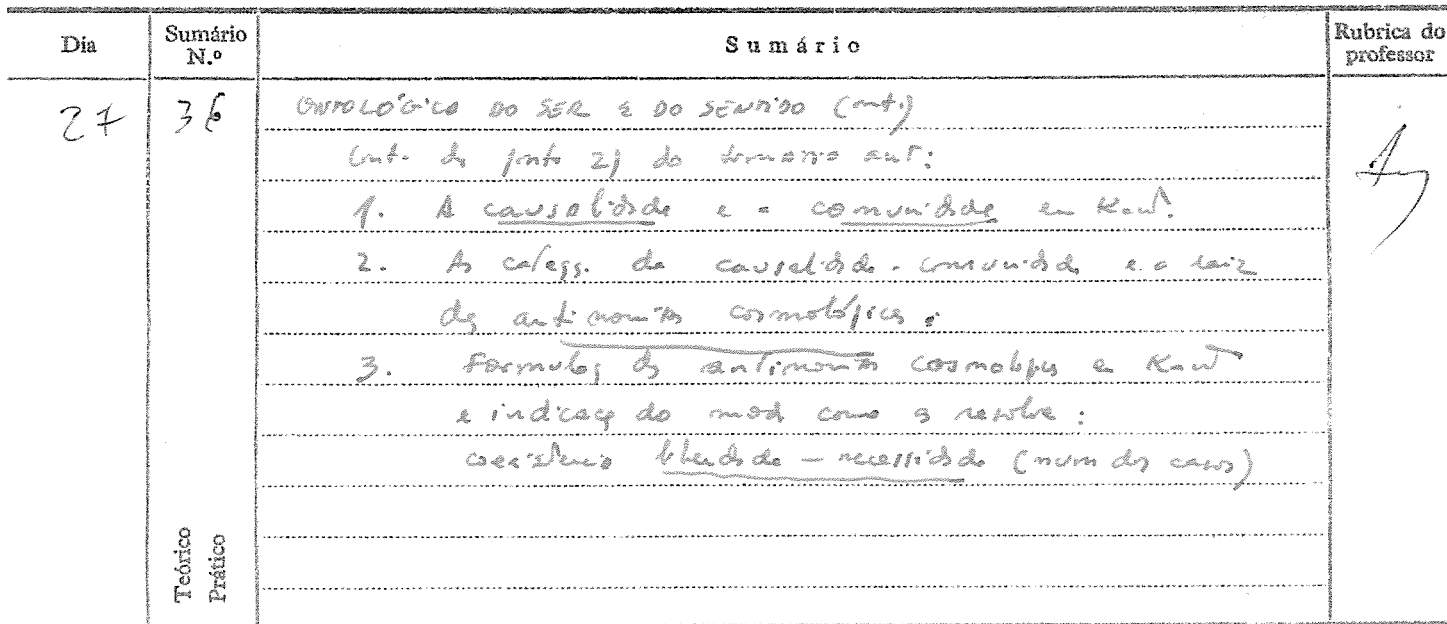 Dia Sumário N.º Sumário Rubrica do professor
27 36 ONTOLÓGICA DO SER E DO SENTIDO (cont.)
Cont. do ponto 2) do sumário ant:
1. A causalidade e a comunidade em Kant.
2. As categs. da causalidade - comunidade e a raiz
das antinomias cosmológicas.
3. Formulaç das antinomias cosmologicas em Kant
e indicaç do modo como as resolve:
coexistencia liberdade - necessidade (num dos casos)
Teórico
Prático